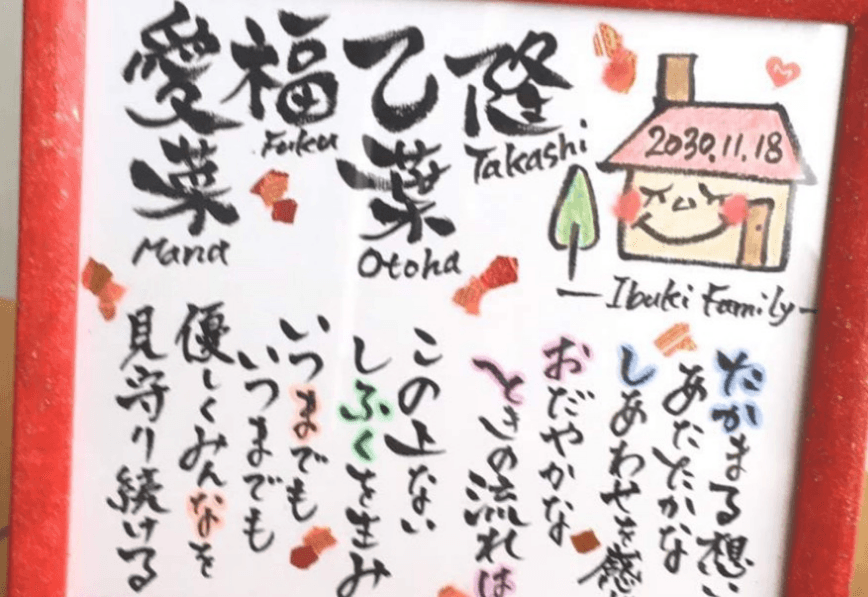 2030.11.18
Ibuki Family
隆
Takashi
乙葉
Otoha
福
Fuku
愛菜
Mana
たかまる想い
あたたかな
しあわせを感
おだやかな
ときの流れは
この上ない
しふくを生み
いつまでも
いつまでも
優しくみんなを
見守り続ける